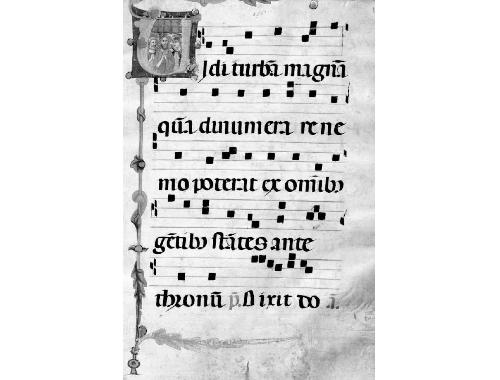 Vidi turbā magnā
quā dinumerare ne
mo poterat ex omībꝫ
gētibꝫ stātes ante
thronū p̄. Dixit do